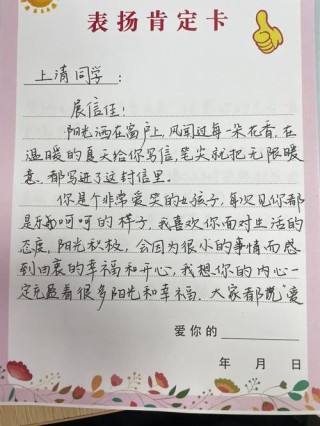 表扬肯定卡
上清同学：
展信佳！
阳光洒在窗户上，风闻过每一朵花香，在
温暖的夏天给你写信，笔尖就把无限暖
意，都写进了这封信里。
你是个非常爱笑的女孩子，每次见你都
是乐呵呵的样子，我喜欢你面对生活的
态度，阳光积极，会因为很小的事情而感
到由衷的幸福和开心，我想你的内心一
定充盈着很多阳光和幸福，大家都说“爱
爱你的
年 月 日